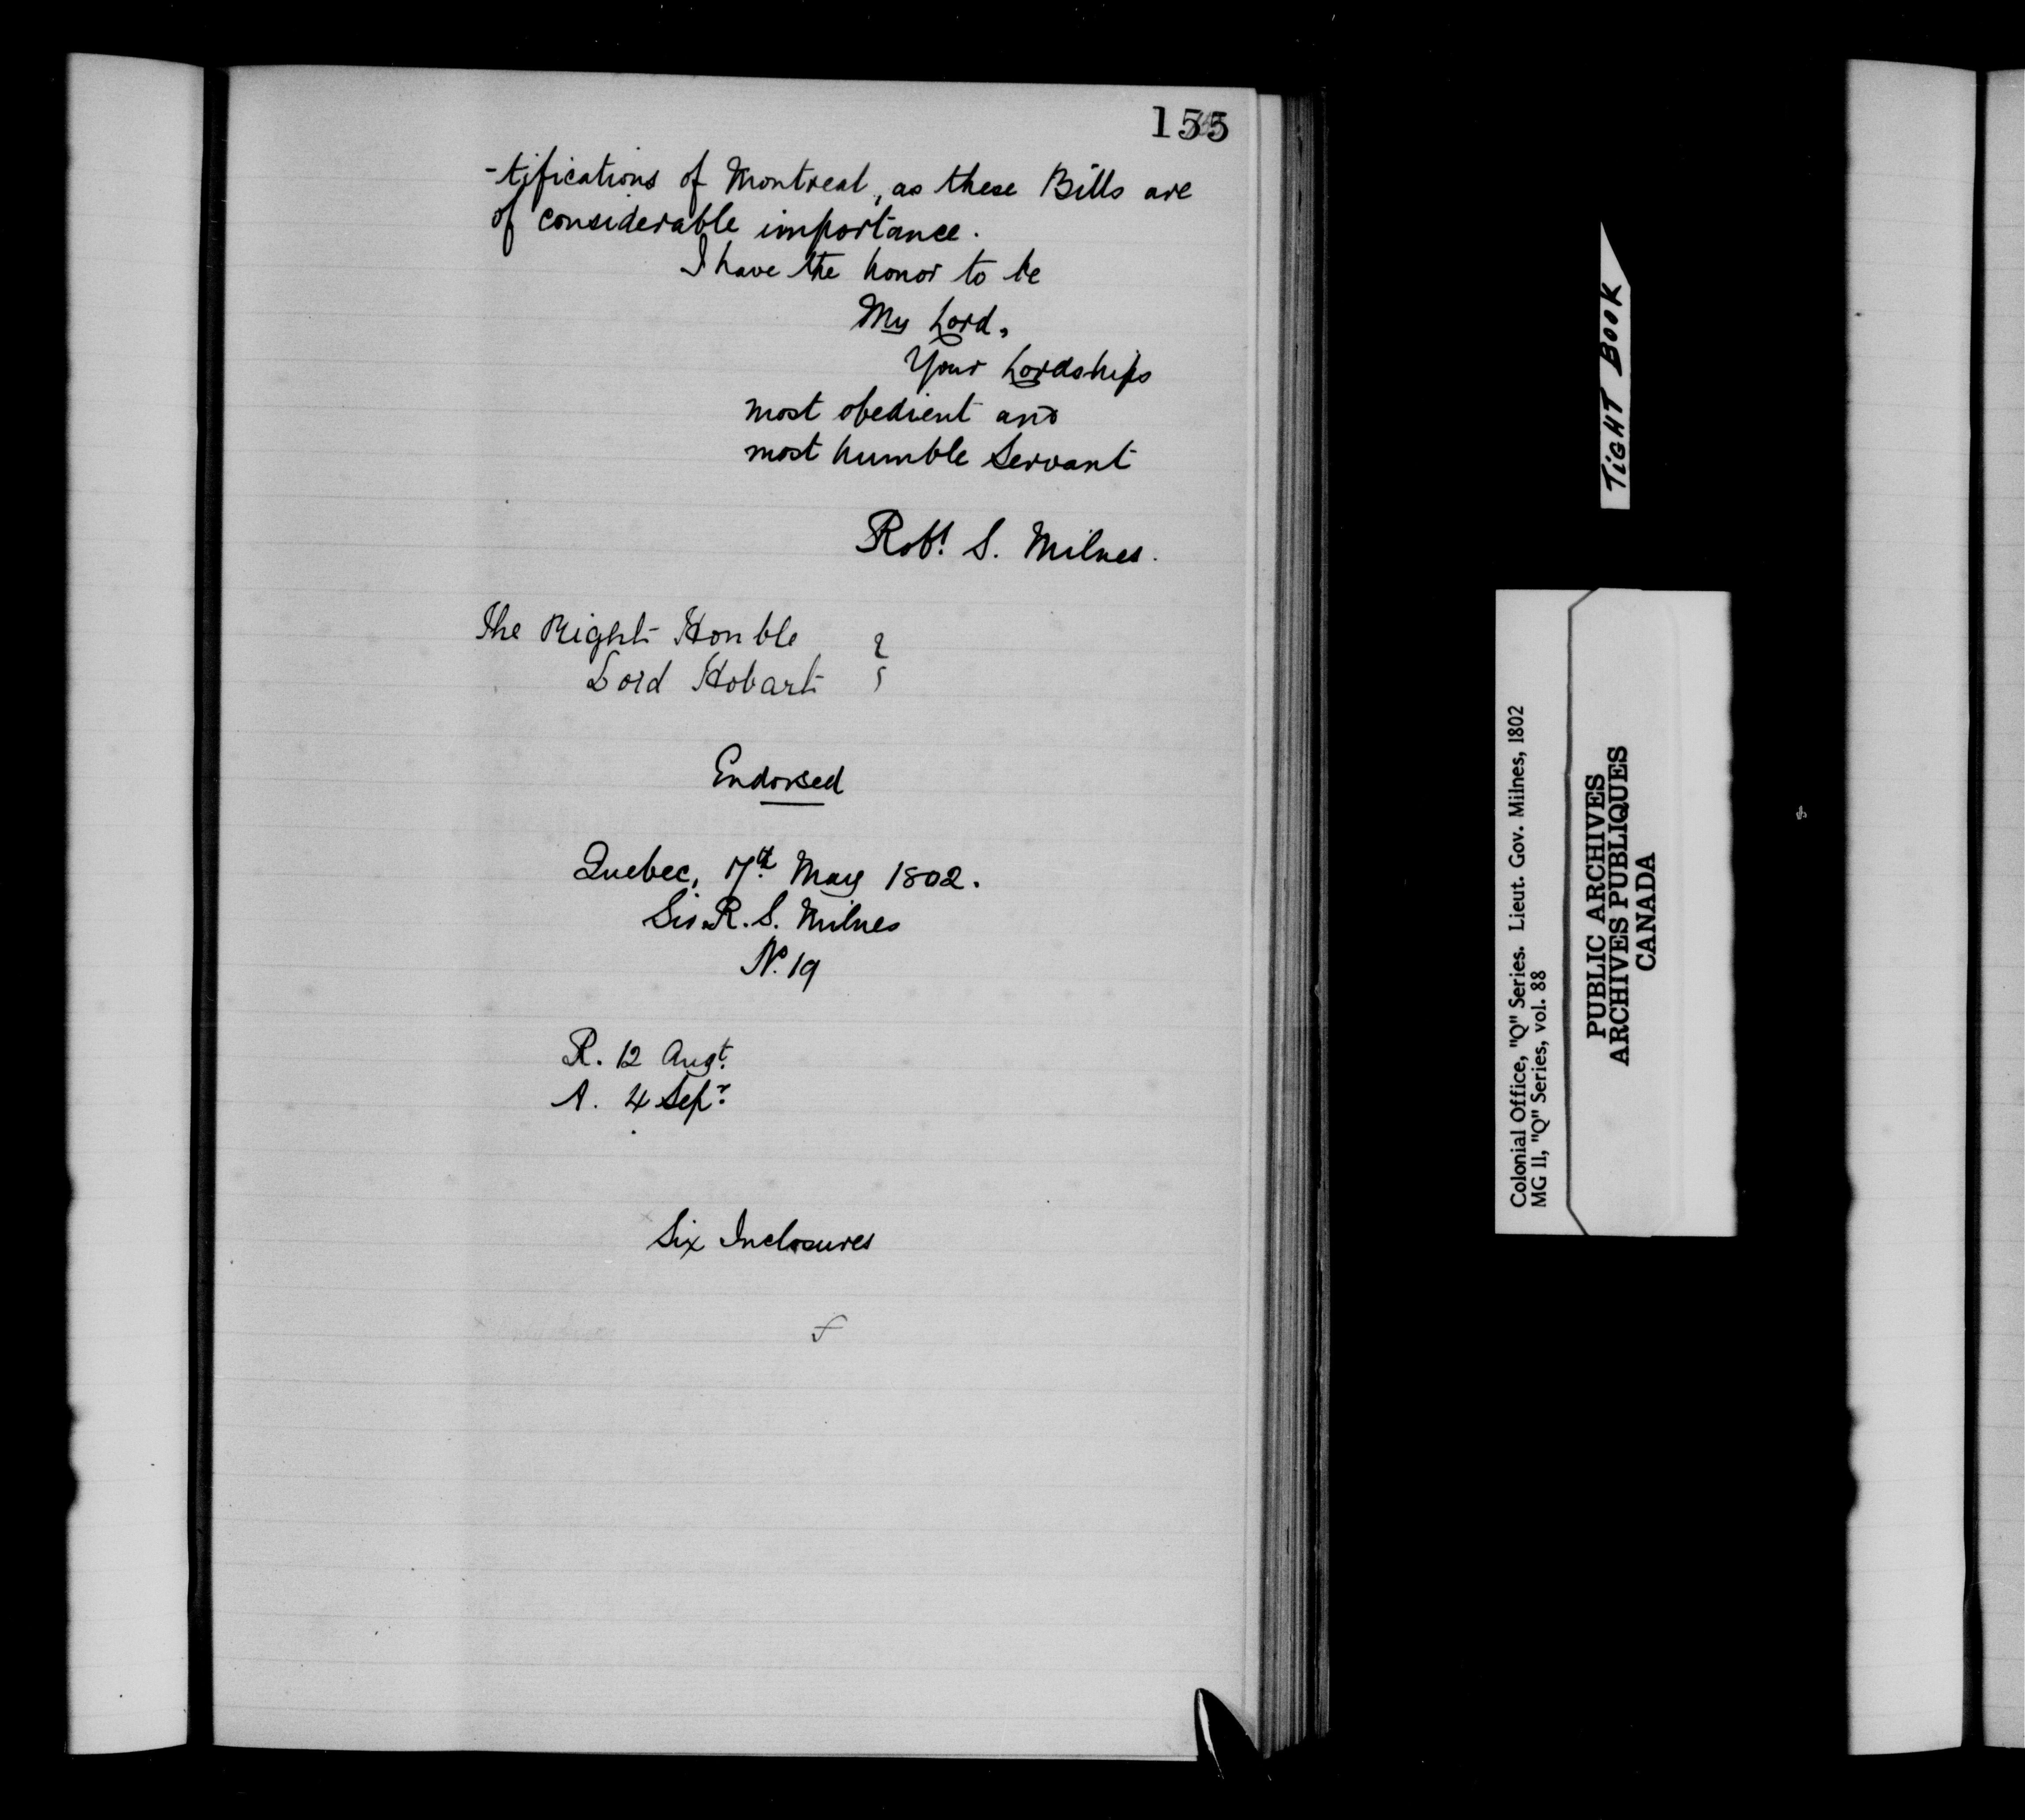 155
-tifications of Montreal, as these Bills are
of considerable importance.
I have the honor to be
My Lord,
Your Lordships
most obedient and
most humble Servant
Robt. S. Milnes.
The Right Honble
Lord Hobart
Endorsed
Quebec, 17th May 1802.
Sir R. S. Milnes
No. 19
R. 12 Augt.
A. 4 Sepr.
Six Inclosures
TIGHT BOOK
Colonial Office, "Q" Series. Lieut. Gov. Milnes, 1802
MG 11, "Q" Series, vol. 88
PUBLIC ARCHIVES
ARCHIVES PUBLIQUES
CANADA